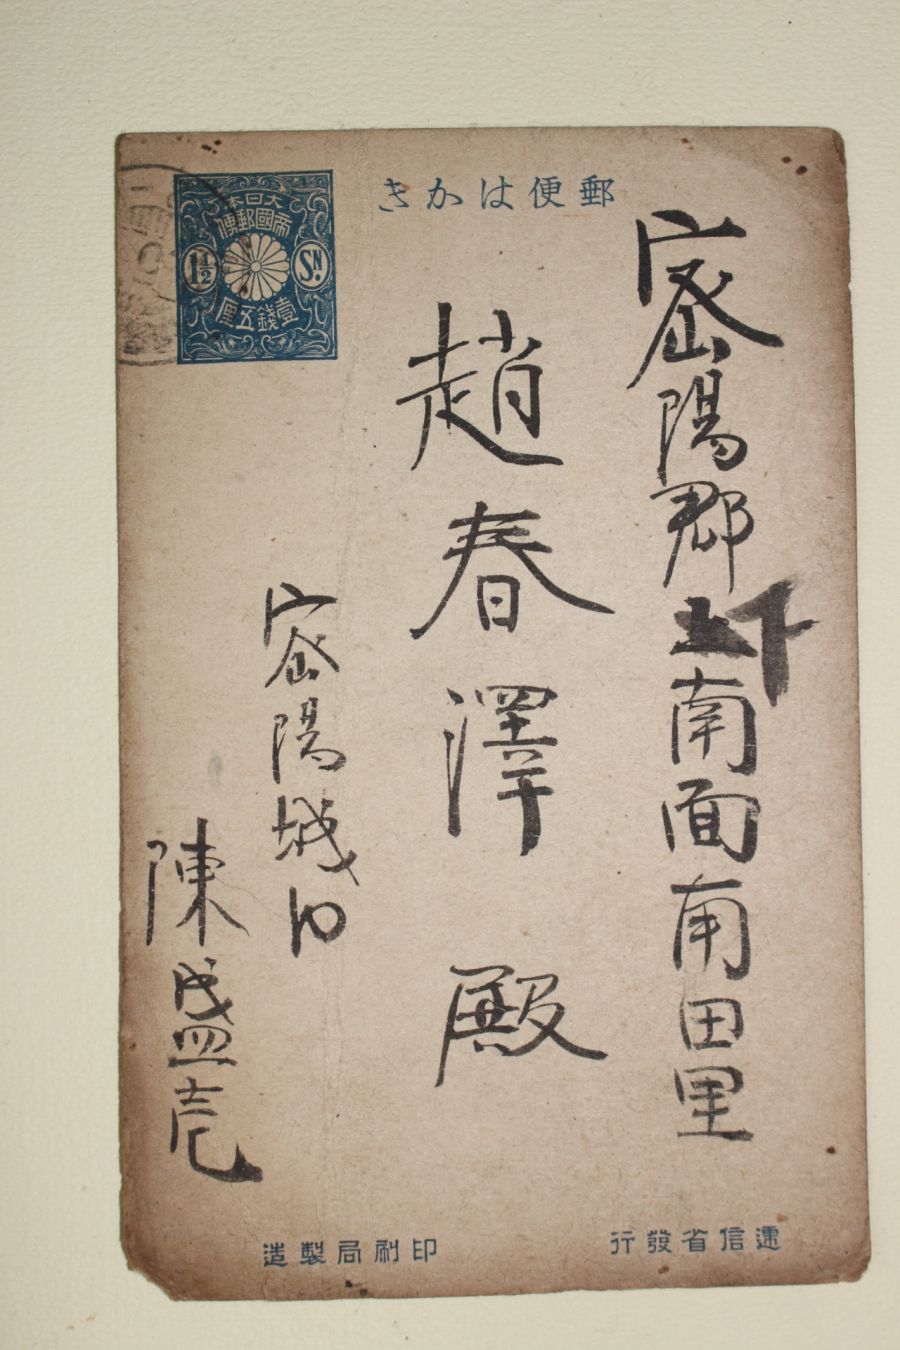 郵便はかき
大日本
帝國郵便
1½ SN.
壹錢五厘
密陽郡下南面南田里
趙春澤殿
密陽城内
陳盛
遞信省發行
印刷局製造